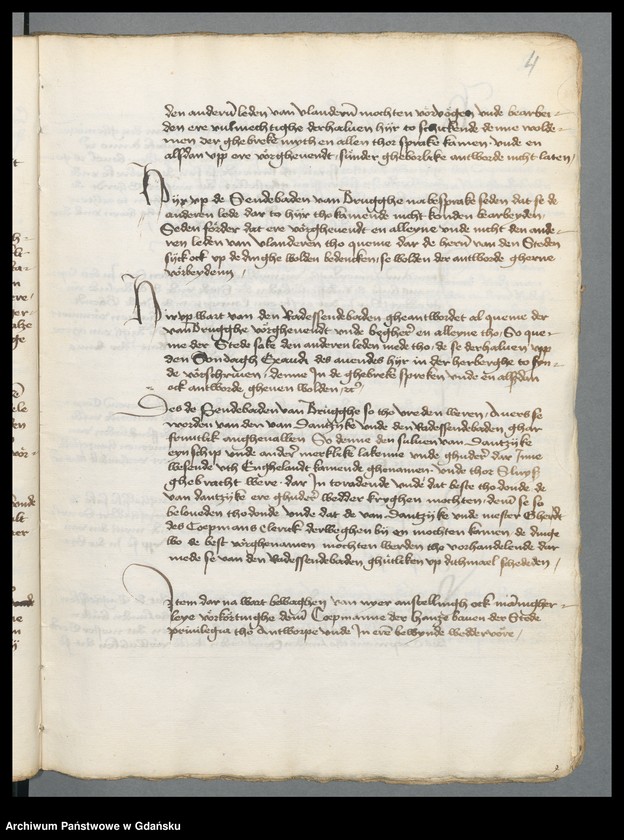 4
den anderñ leden van vlanderñ mochten vorvögen vnde bearbei-
den ere vulmechtighe derhaluen hijr to schickende denne wolde-
men der ghebreke myth en allen thor sprake kamen vnde en
alssdan vpp ere vörgheuendt sunder gheborlike antworde nicht laten /
Hijr vp de Sendebaden van Brugghe nabesprake seden dat se de
anderen lede dar to hijr tho kamende nicht konden bearbeyden
Seden forder dat ere vörgheuendt en allerne vnde nicht den ande-
ren leden van vlanderen tho queme dar de herñ van den Steden
sijck ock vp de dinghe wolden bedencken se wolden der antworde gherne
vörbeydenn /
Hir vpp wart van den Radessendebaden gheantwordet al queme der
van Brugghe vörgheuendt vnde begher en allerne tho So que-
me der Stede sake den anderen leden mede tho de se derhaluen vpp
den Sondagh Exaudi des auendes hijr in der herberghe to syn-
de vörschreuen denne In de ghebreke spreken vnde en alssdan
ock antworde gheuen wolden etc /
Des de Sendebaden van Brugghe so tho vreden weren Auers se
worden van den van Dantzijke vnde den Radessendebaden ghar
fruntlik anghevallen So denne den suluen van Dantzijke
eyn schip vnde ander merklike lakenne vnde ghuder dar Inne
wesende vth Enghelandt kamende ghenamen vnde thor Sluyss
ghebracht were dar In toradende vnde dat beste tho donde de
van dantzijke ere ghuder wedder kryghen mochten dem se so
beloueden tho donde vnde dat de van Dantzijke vnde mester Gherdt
des Coepmans Clerick derweghen bij en mochten kamen de dinge
wo de best vörghenamen mochten werden tho vorhandelende dar
mede se van den Radessendebaden ghutliken vp dithmael scheden /
Item dar na wart bewaghen van nyer anstellingh ock mannigher-
leye vorkortinghe dem Coepmanne der hanze bauen der Stede
priuilegia tho Antworpe vnde In ere bewynde wedderuöre /
Archiwum Państwowe w Gdańsku